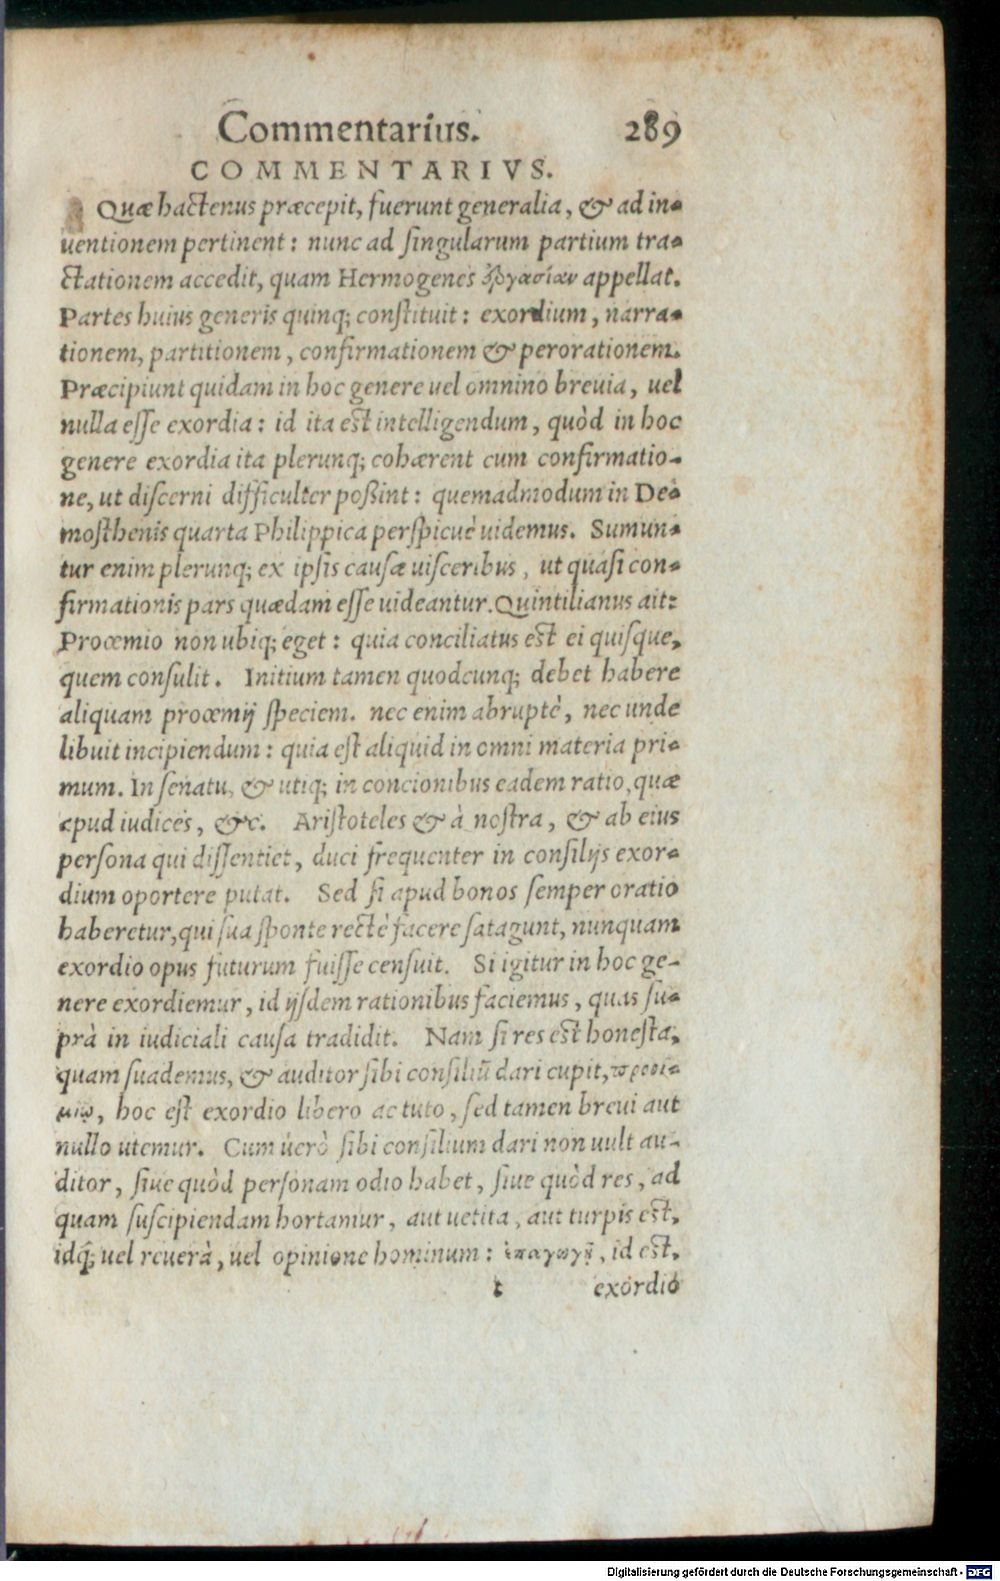 Commentarius. 289
COMMENTARIVS.
Quæ hactenus præcepit, fuerunt generalia, & ad in-
uentionem pertinent: nunc ad singularum partium tra-
ctationem accedit, quam Hermogenes ἐργασίαν appellat.
Partes huius generis quinq; constituit: exordium, narra-
tionem, partitionem, confirmationem & perorationem.
Præcipiunt quidam in hoc genere uel omnino breuia, uel
nulla esse exordia: id ita est intelligendum, quòd in hoc
genere exordia ita plerunq; cohærent cum confirmatio-
ne, ut discerni difficulter poßint: quemadmodum in De-
mosthenis quarta Philippica perspicuè uidemus. Sumun-
tur enim plerunq; ex ipsis causæ uisceribus, ut quasi con-
firmationis pars quædam esse uideantur. Quintilianus ait:
Proœmio non ubiq; eget: quia conciliatus est ei quisque,
quem consulit. Initium tamen quodcunq; debet habere
aliquam proœmij speciem. nec enim abruptè, nec unde
libuit incipiendum: quia est aliquid in omni materia pri-
mum. In senatu, & utiq; in concionibus eadem ratio, quæ
apud iudices, &c. Aristoteles & à nostra, & ab eius
persona qui dissentiet, duci frequenter in consilijs exor-
dium oportere putat. Sed si apud bonos semper oratio
haberetur, qui sua sponte rectè facere satagunt, nunquam
exordio opus futurum fuisse censuit. Si igitur in hoc ge-
nere exordiemur, id ijsdem rationibus faciemus, quas su-
prà in iudiciali causa tradidit. Nam si res est honesta,
quam suademus, & auditor sibi consiliũ dari cupit, προοι-
μίῳ, hoc est exordio libero ac tuto, sed tamen breui aut
nullo utemur. Cum uerò sibi consilium dari non uult au-
ditor, siue quòd personam odio habet, siue quòd res, ad
quam suscipiendam hortamur, aut uetita, aut turpis est,
idq́; uel reuerà, uel opinione hominum: ἐπαγωγῇ, id est,
t exordio
Digitalisierung gefördert durch die Deutsche Forschungsgemeinschaft - DFG